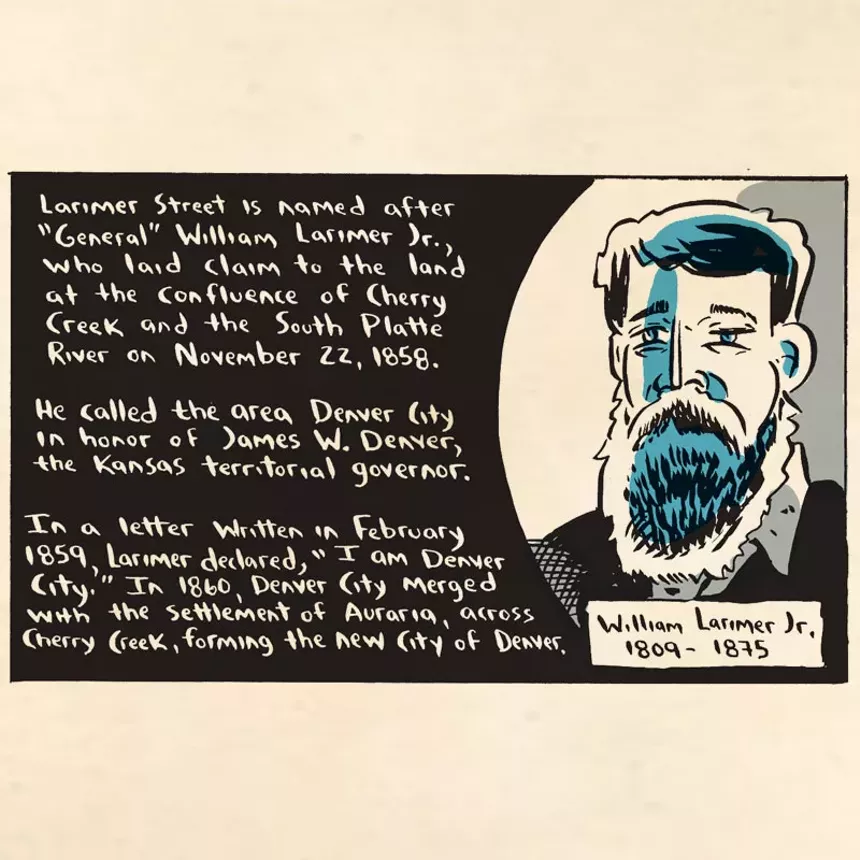 Larimer Street is named after
"General" William Larimer Jr.,
who laid claim to the land
at the confluence of Cherry
Creek and the South Platte
River on November 22, 1858.
He called the area Denver City
in honor of James W. Denver,
the Kansas territorial governor.
In a letter written in February
1859, Larimer declared, "I am Denver
City." In 1860, Denver City merged
with the settlement of Auraria, across
Cherry Creek, forming the new City of Denver.
William Larimer Jr.
1809- 1875